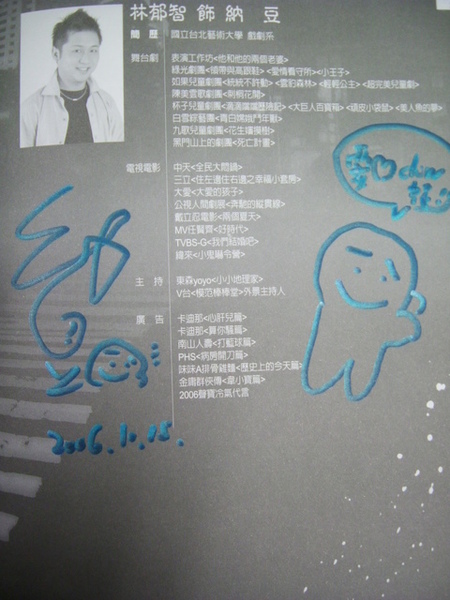 林郁智 飾 納 豆
簡 歷 國立台北藝術大學 戲劇系
舞台劇 表演工作坊<他和他的兩個老婆>
綠光劇團<領帶與高跟鞋><愛情看守所><小王子>
如果兒童劇團<統統不許動><雲豹森林><輕輕公主><超完美兒童劇>
陳美雲歌劇團<刺桐花開>
杯子兒童劇團<滴滴噹噹歷險記><大巨人百寶箱><頑皮小袋鼠><美人魚的夢>
白雪綜藝團<青白娲娥鬥年獸>
九歌兒童劇團<花生糖摸樹>
黑門山上的劇團<死亡計畫>
電視電影 中天<全民大悶鍋>
三立<住左邊住右邊之幸福小套房>
大愛<大愛的孩子>
公視人間劇展<奔馳的縱貫線>
戴立忍電影<兩個夏天>
MV任賢齊<好時代>
TVBS-G<我們結婚吧>
緯來<小鬼嚇令營>
主 持 東森yoyo<小小地理家>
V台<模范棒棒堂>外景主持人
廣 告 卡迪那<心肝兒篇>
卡迪那<算你騷篇>
南山人壽<打籃球篇>
PHS<病房開刀篇>
味味A排骨雞麵<歷史上的今天篇>
金庸群俠傳<韋小寶篇>
2006聲寶冷氣代言
2006.10.15.